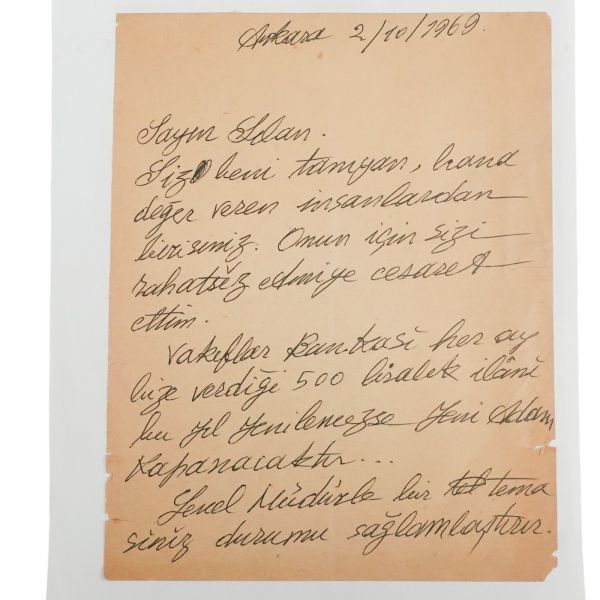 Ankara 2/10/1969.
Sayın Idan.
Siz beni tanıyan, bana
değer veren insanlardan
birisiniz. Onun için sizi
rahatsız etmiye cesaret
ettim.
Vakıflar Bankası her ay
bize verdiği 500 liralık ilânı
bu yıl yenilemezse Yeni Adam
Kapanacaktır...
Genel Müdürle bir tema
sınız durumu sağlamlaştırır.